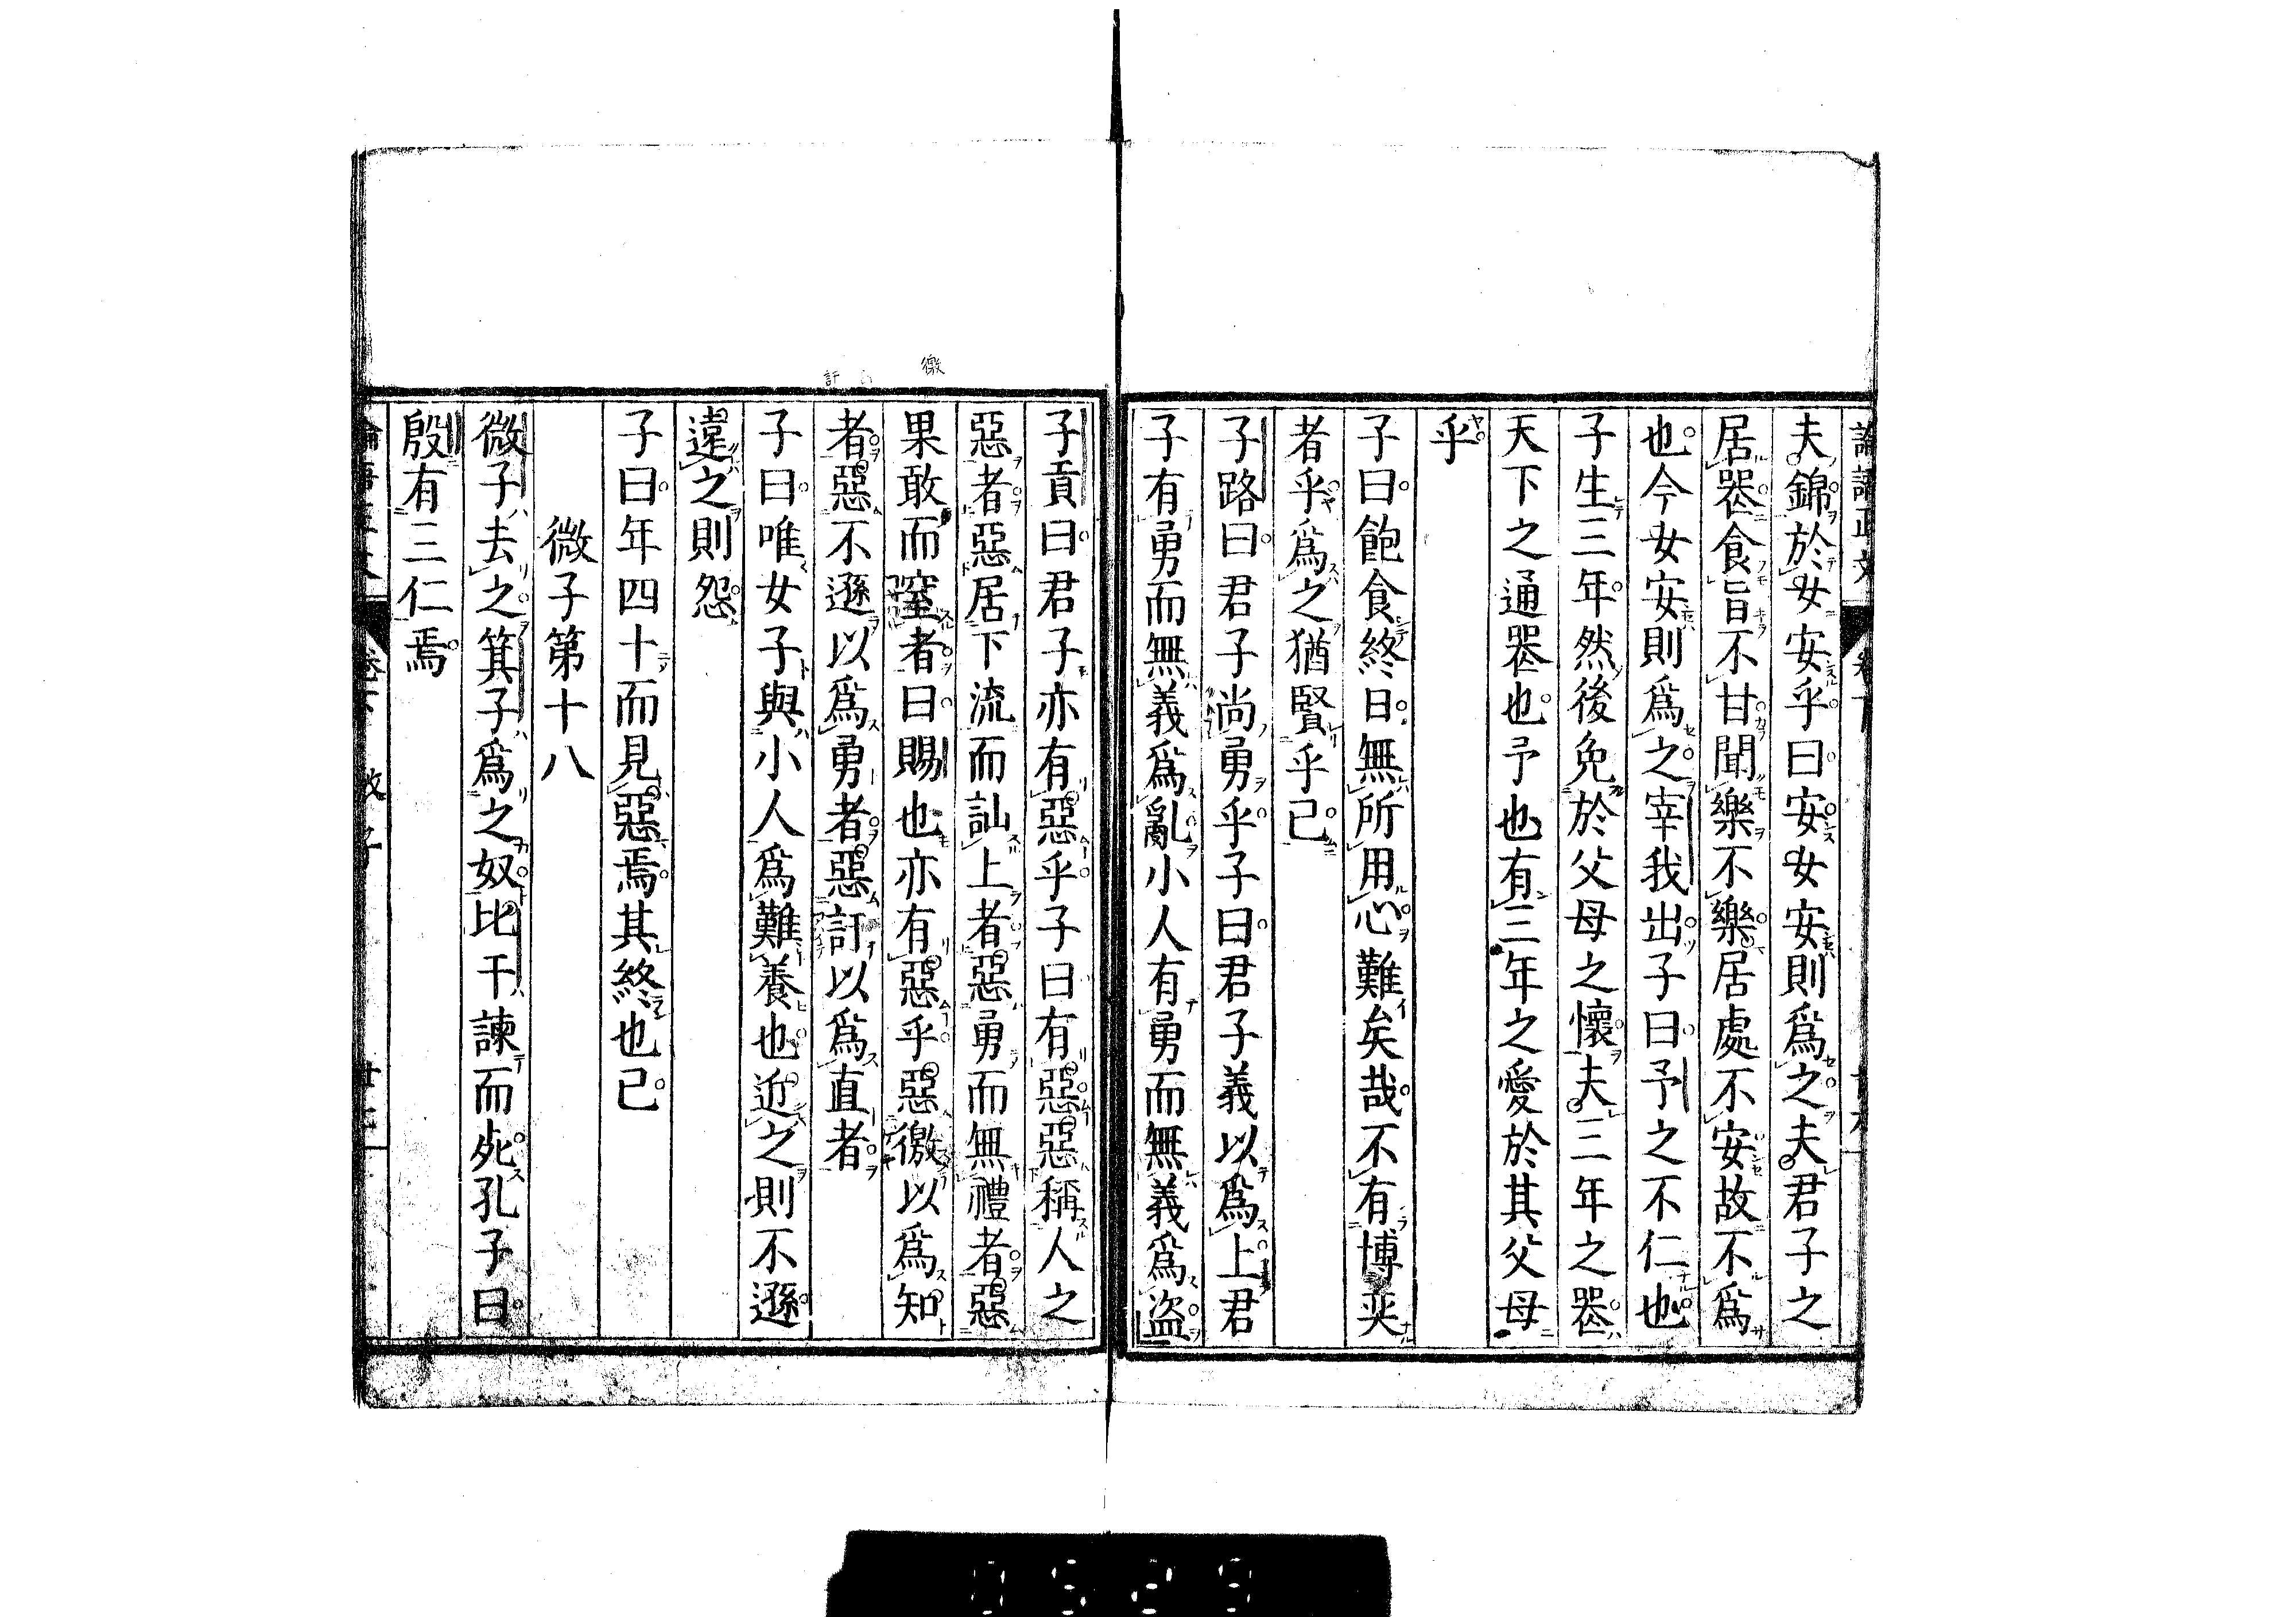 夫錦於女安乎曰安女安則爲之夫君子之
居喪食旨不甘聞樂不樂居處不安故不爲
也今女安則爲之宰我出子曰予之不仁也
子生三年然後免於父母之懷夫三年之喪
天下之通喪也予也有三年之愛於其父母
乎
子曰飽食終日無所用心難矣哉不有博奕
者乎爲之猶賢乎已
子路曰君子尚勇乎子曰君子義以爲上君
子有勇而無義爲亂小人有勇而無義爲盜
徼
訐
子貢曰君子亦有惡乎子曰有惡惡稱人之
惡者惡居下流而訕上者惡勇而無禮者惡
果敢而窒者曰賜也亦有惡乎惡徼以爲知
者惡不遜以爲勇者惡訐以爲直者
子曰唯女子與小人爲難養也近之則不遜
遠之則怨
子曰年四十而見惡焉其終也已
微子第十八
微子去之箕子爲之奴比干諫而死孔子曰
殷有三仁焉
0529